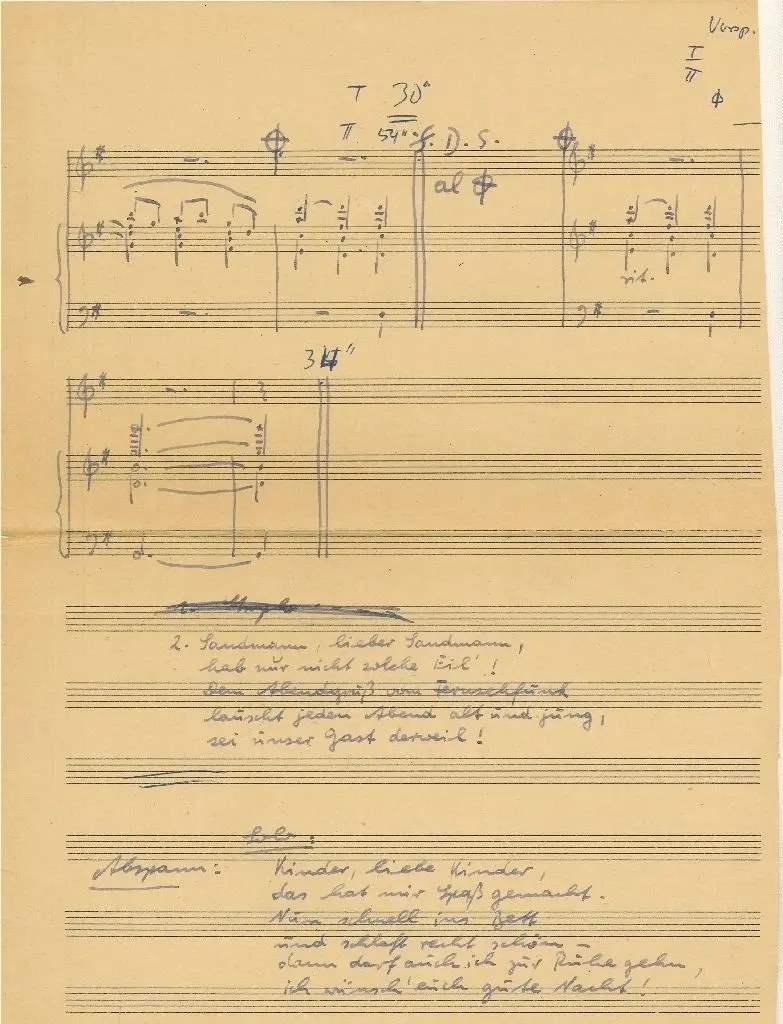 Vorsp.
I
II
I 30"
II 54"
D. S.
al
rit.
34"
2. Sandmann, lieber Sandmann,
hab nur nicht solche Eil'!
Dem Abendgruß vom Fernsehfunk
lauscht jeden Abend alt und jung,
sei unser Gast derweil!
Solo:
Abspann: Kinder, liebe Kinder,
das hat mir Spaß gemacht.
Nun schnell ins Bett
und schlaft recht schön –
dann darf auch ich zur Ruhe gehn,
ich wünsch' euch gute Nacht!